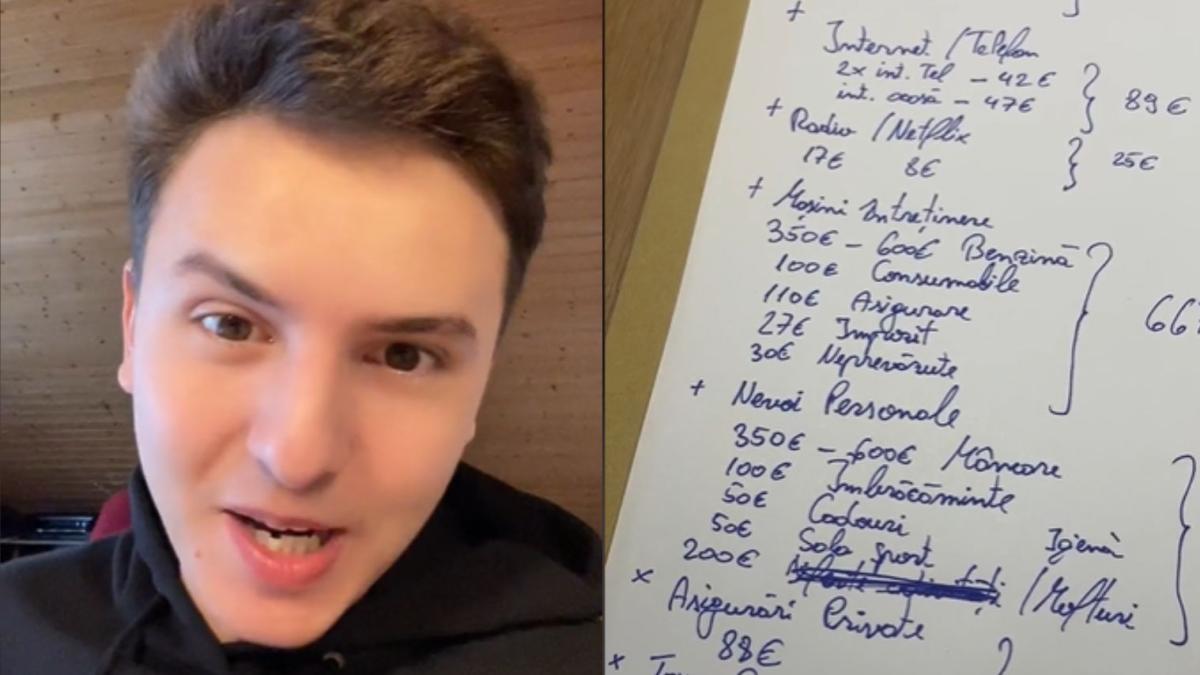 +
Internet / Telefon
2x int. Tel - 42€
int. acasă - 47€
} 89€
+ Radio / Netflix
17€ 8€ } 25€
+ Mașini Întreținere
350€ - 600€ Benzină
100€ Consumabile
110€ Asigurare
27€ Impozit
30€ Neprevăzute
} 667
+ Nevoi Personale
350€ - 600€ Mâncare
100€ Îmbrăcăminte
50€ Cadouri
50€ Sala sport
200€ Igienă / Mofturi
x Asigurări Private
88€
x